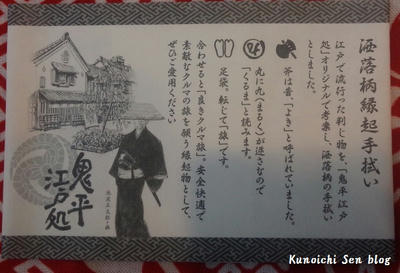 洒落柄縁起手拭い
江戸で流行った判じ物を、「鬼平江戸
処」オリジナルで考案し、洒落柄の手拭い
としました。
斧は昔、「よき」と呼ばれていました。
丸に九（まるく）が逆さなので
「くるま」と読みます。
足袋。転じて「旅」です。
合わせると「良きクルマ旅」。安全快適で
素敵なクルマの旅を願う縁起物として、
ぜひご愛用ください
鬼平
江戸処
Kunoichi Sen blog